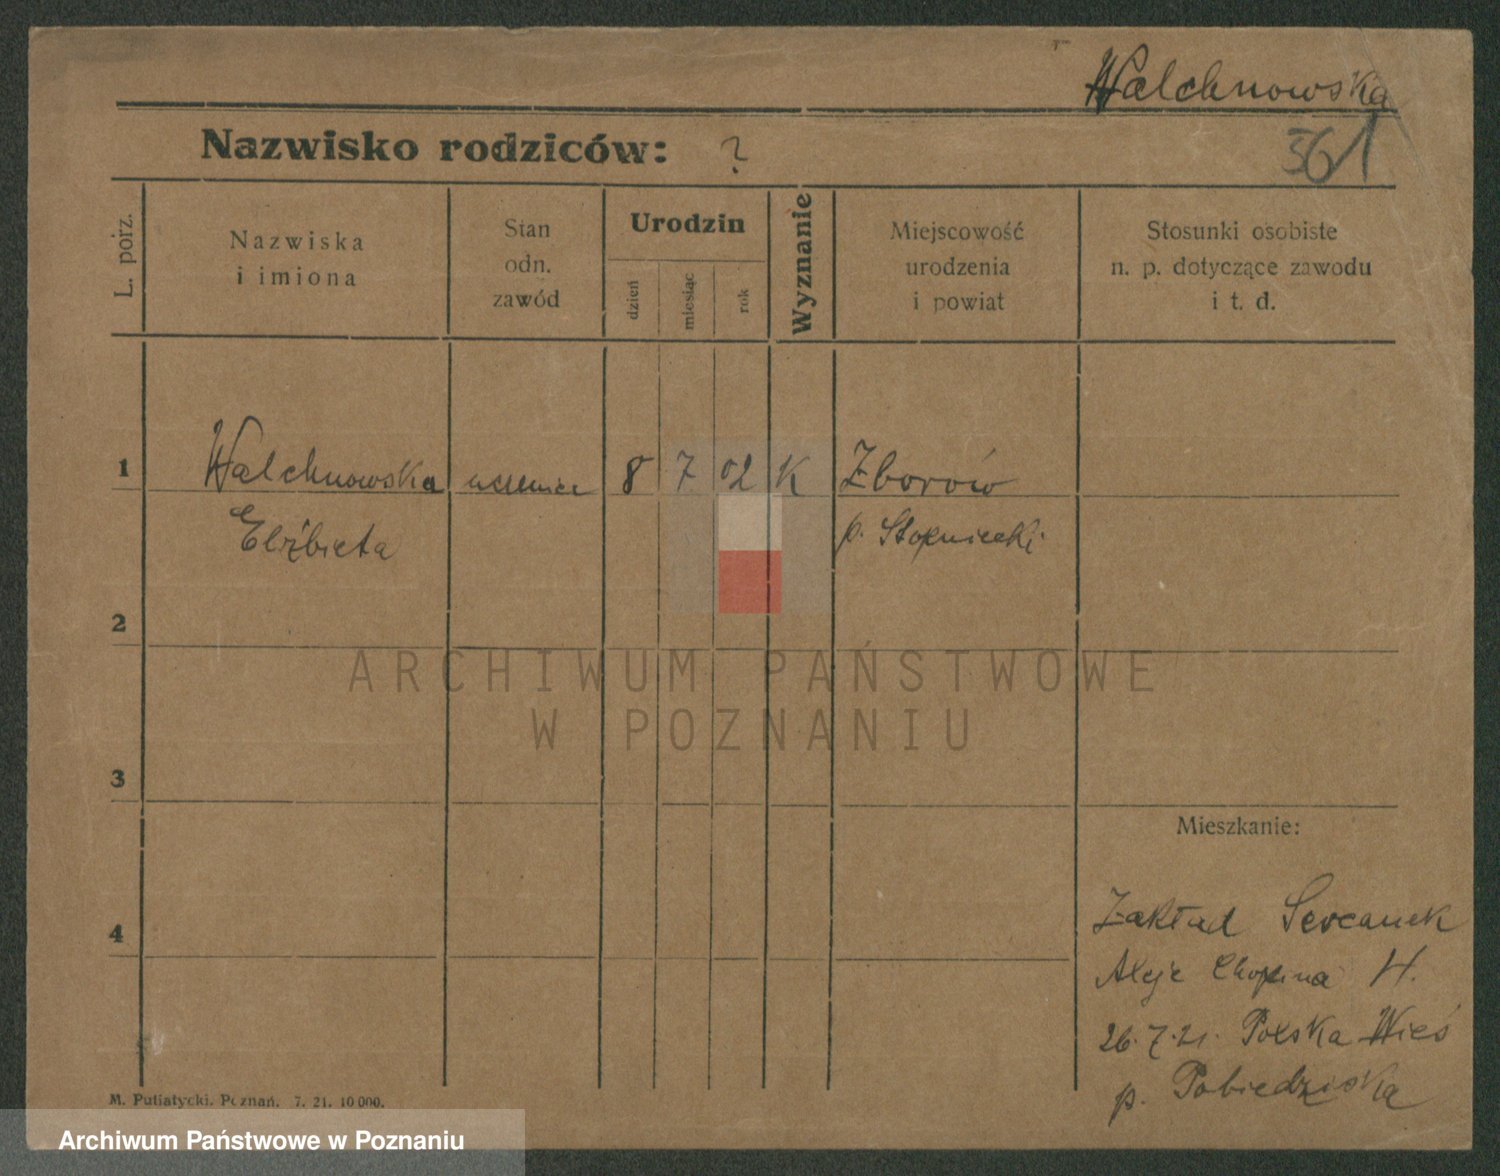 Walchnowska
361
Nazwisko rodziców: ?
L. porz.
Nazwiska
i imiona
Stan
odn.
zawód
Urodzin
dzień
miesiąc
rok
Wyznanie
Miejscowość
urodzenia
i powiat
Stosunki osobiste
n. p. dotyczące zawodu
i t. d.
1 Walchnowska uczenica 8 7 02 K Zborów
Elżbieta p. Stopniecki
2
ARCHIWUM PAŃSTWOWE
W POZNANIU
3
Mieszkanie:
4
Zakład Sercanek
Aleje Chopina 4.
26.7.21. Polska Wieś
p. Pobiedziska
M. Putiatycki. Poznań. 7. 21. 10 000.
Archiwum Państwowe w Poznaniu